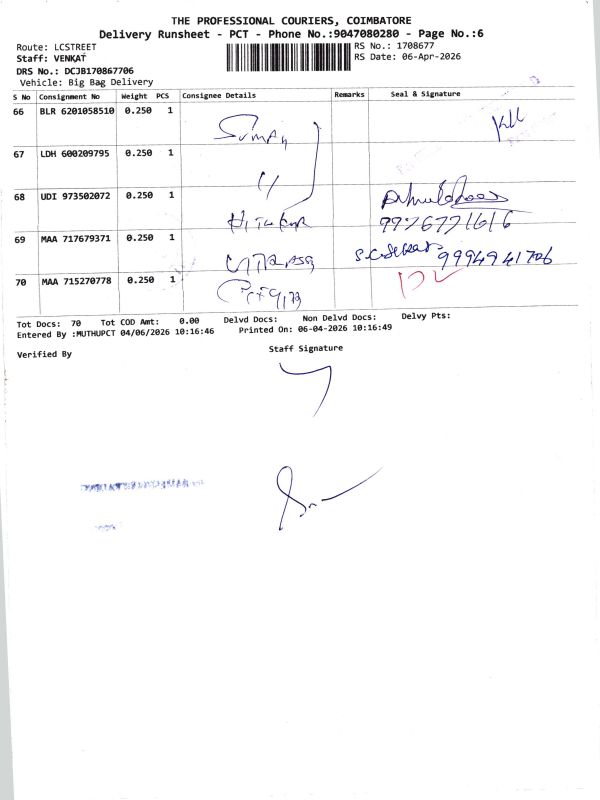 THE PROFESSIONAL COURIERS, COIMBATORE
Delivery Runsheet - PCT - Phone No.:9047080280 - Page No.:6
Route: LCSTREET
Staff: VENKAT
DRS No.: DCJB170867706
Vehicle: Big Bag Delivery
RS No.: 1708677
RS Date: 06-Apr-2026
S No Consignment No Weight PCS Consignee Details Remarks Seal & Signature
66 BLR 6201058510 0.250 1 Suman
67 LDH 600209795 0.250 1 "
68 UDI 973502072 0.250 1
9976771616
69 MAA 717679371 0.250 1 S.C. Sekar 9994941706
70 MAA 715270778 0.250 1
Tot Docs: 70 Tot COD Amt: 0.00 Delvd Docs: Non Delvd Docs: Delvy Pts:
Entered By :MUTHUPCT 04/06/2026 10:16:46 Printed On: 06-04-2026 10:16:49
Verified By
Staff Signature